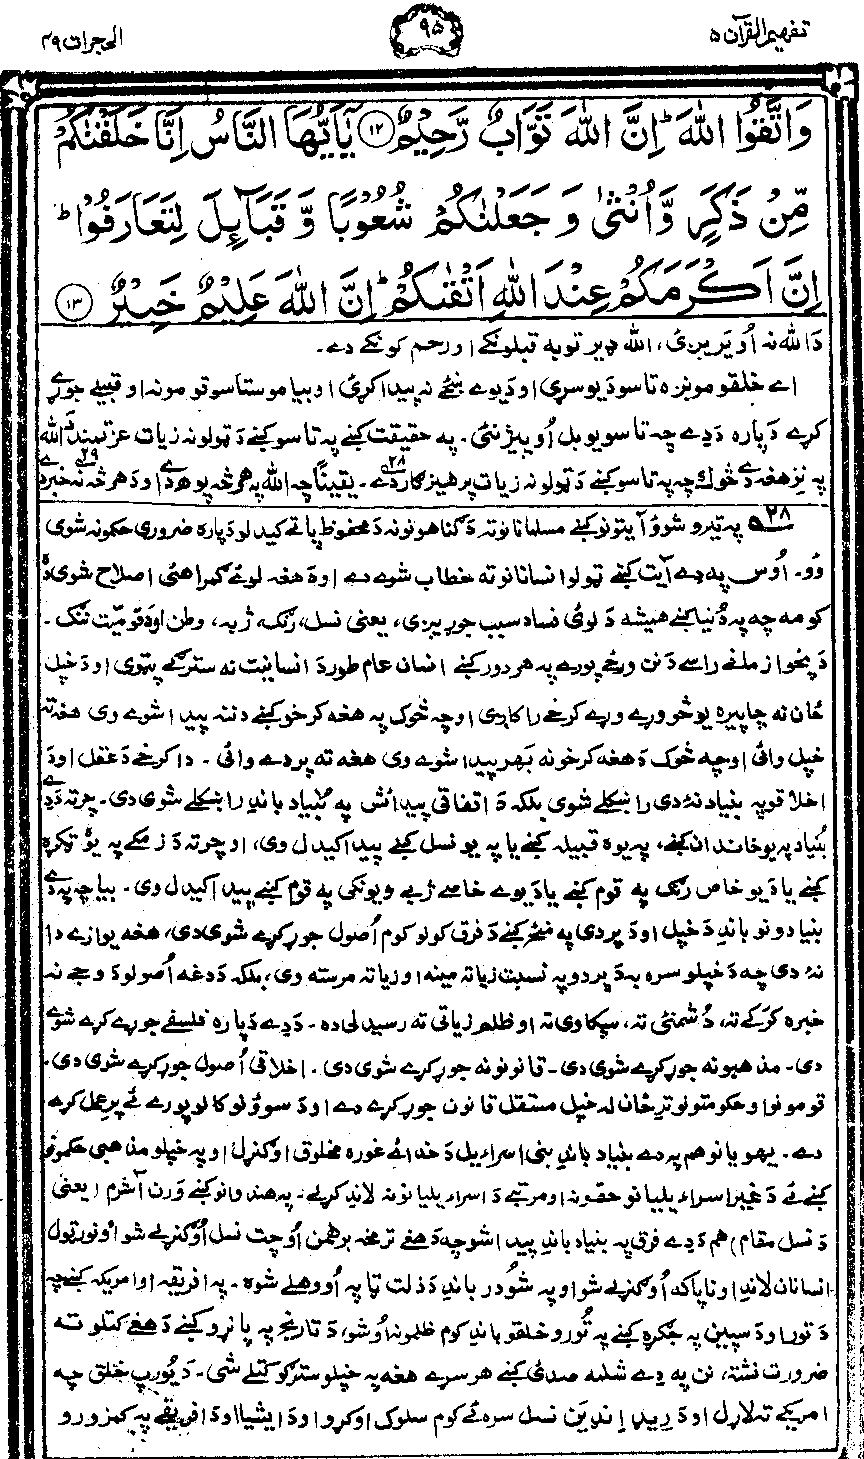 تفهيم القرآن ۵
۹۵
الحجرات ۴۹
وَاتَّقُوا اللّٰهَ ؕ اِنَّ اللّٰهَ تَوَّابٌ رَّحِيْمٌ ۝۱۲ يٰٓاَيُّهَا النَّاسُ اِنَّا خَلَقْنٰكُمْ
مِّنْ ذَكَرٍ وَّاُنْثٰى وَ جَعَلْنٰكُمْ شُعُوْبًا وَّ قَبَآئِلَ لِتَعَارَفُوْا ؕ
اِنَّ اَكْرَمَكُمْ عِنْدَ اللّٰهِ اَتْقٰىكُمْ ؕ اِنَّ اللّٰهَ عَلِيْمٌ خَبِيْرٌ ۝۱۳
دَ الله نه اُويريږئ، الله ډير توبه قبلونكے اورحم كونكے دے۔
اے خلقو مونږه تاسو ديو سړى اود يوے ښځے نه پيدا كړئ اوبيا مو ستاسو قومونه او قبيلے جوړے
كړے دَپاره دَدے چه تاسو يو بل اُوپيژنئ۔ په حقيقت كښے په تاسو كښے دَ ټولو نه زيات عزتمند دَ الله
په نِز هغه دے څوك چه په تاسو كښے دَ ټولو نه زيات پرهيزګار دے۲۸۔ يقيناً چه الله په هر څه پوهه دے او د هر څه نه خبر دے۲۹
۲۸ په تيرو شوؤ آيتونو كښے مسلمانانو ته دَ ګناهونو نه دَ محفوظ پاتے كيدلو دَپاره ضرورى حكمونه شوى
وُو۔ اُوس په دے آيت كښے ټولو انسانانو ته خطاب شوے دے اودَ هغه لوئے ګمراهئى اصلاح شوى ده
كومه چه په دُنيا كښے هميشه دَ لوئ فساد سبب جوړيږى، يعنى نسل، رنګ، ژبه، وطن اودَ قوميّت ننګ۔
دَ پخوا زمانے راسے دَ نن ورځے پورے په هر دور كښے انسان عام طور دَ انسانيت نه سترګے پټوى اودَ خپل
ځان نه چاپيره يو څو وړے وړے كرښے راكاږى اوچه څوك په هغه كرښو كښے دننه پيدا شوے وى هغه ته
خپل وائى اوچه څوك دَ هغه كرښو نه بهر پيدا شوے وى هغه ته پردے وائى۔ دا كرښے دَ عقل اودَ
اخلاقو په بنياد نه دى راښكلے شوى بلكه دَ اتفاقى پيدائش په بُنياد باندِ راښكلے شوى دى۔ چرته دَدے
بُنياد په يو خاندان كښے، په يوه قبيله كښے يا په يو نسل كښے پيدا كيدل وى، اوچرته دَ زمكے په يوهٔ ټكړه
كښے يا دَيو خاص رنګ په قوم كښے يا ديوے خاصے ژبے ويونكى په قوم كښے پيدا كيدل وى۔ بيا چه په دے
بنيادونو باندِ دَ خپل اودَ پردى په منځ كښے دَ فرق كولو كوم اُصول جوړ كړے شوى دى، هغه يوازے دا
نه دى چه دَ خپلو سره په دَ پردو په نسبت زياته مينه اوزياته مرسته وى، بلكه دَ دغه اُصولو دَ وجے نه
خبره كركے ته، دُشمنئى ته، سپكاوى ته او ظلم زياتى ته رسيدلے ده۔ دَدے دَپاره فلسفے جوړے كړے شوے
دى۔ مذهبونه جوړ كړے شوى دى۔ قانونونه جوړ كړے شوى دى۔ اخلاقى اُصول جوړ كړے شوى دى۔
قومونو او حكومتونو ترے ځان له خپل مستقل قانون جوړ كړے دے اودَ سوؤنو كالو پورے ئے پرے عمل كړے
دے۔ يهوديانو هم په دے بنياد باندِ بنى اسرائيل دَ خدائے غوره مخلوق اوګنړل او په خپلو مذهبى حكمونو
كښے ئے دَ غير اسرائيليانو حقونه او مرتبے دَ اسرائيليانو نه لاندِ كړلے۔ په هندوانو كښے وَرن آشرم (يعنى
دَ نسل مقام) هم دَدے فرق په بنياد باندِ پيدا شو چه دَ هغے ترمخه برهمن اُوچت نسل اُوګنړلے شو اونور ټول
انسانان لاندِ او ناپاكه اُوګنړلے شو او په شودر باندِ دَ ذلت ټاپه اُووهلے شوه۔ په افريقه او امريكه كښے چه
دَ تورا ودَ سپين په جګړه كښے په تورو خلقو باندِ كوم ظلمونه اُوشو، دَ تاريخ په پاڼو كښے دَ هغے كتلو ته
ضرورت نشته، نن په دے شلمه صدئ كښے هر سړے هغه په خپلو سترګو كتلے شى۔ دَ يُورپ خلق چه
امريكے ته لاړل اودَ ريډ اِنډين نسل سره ئے كوم سلوك اوكړو اودَ ايشيا اودَ افريقے په كمزورو